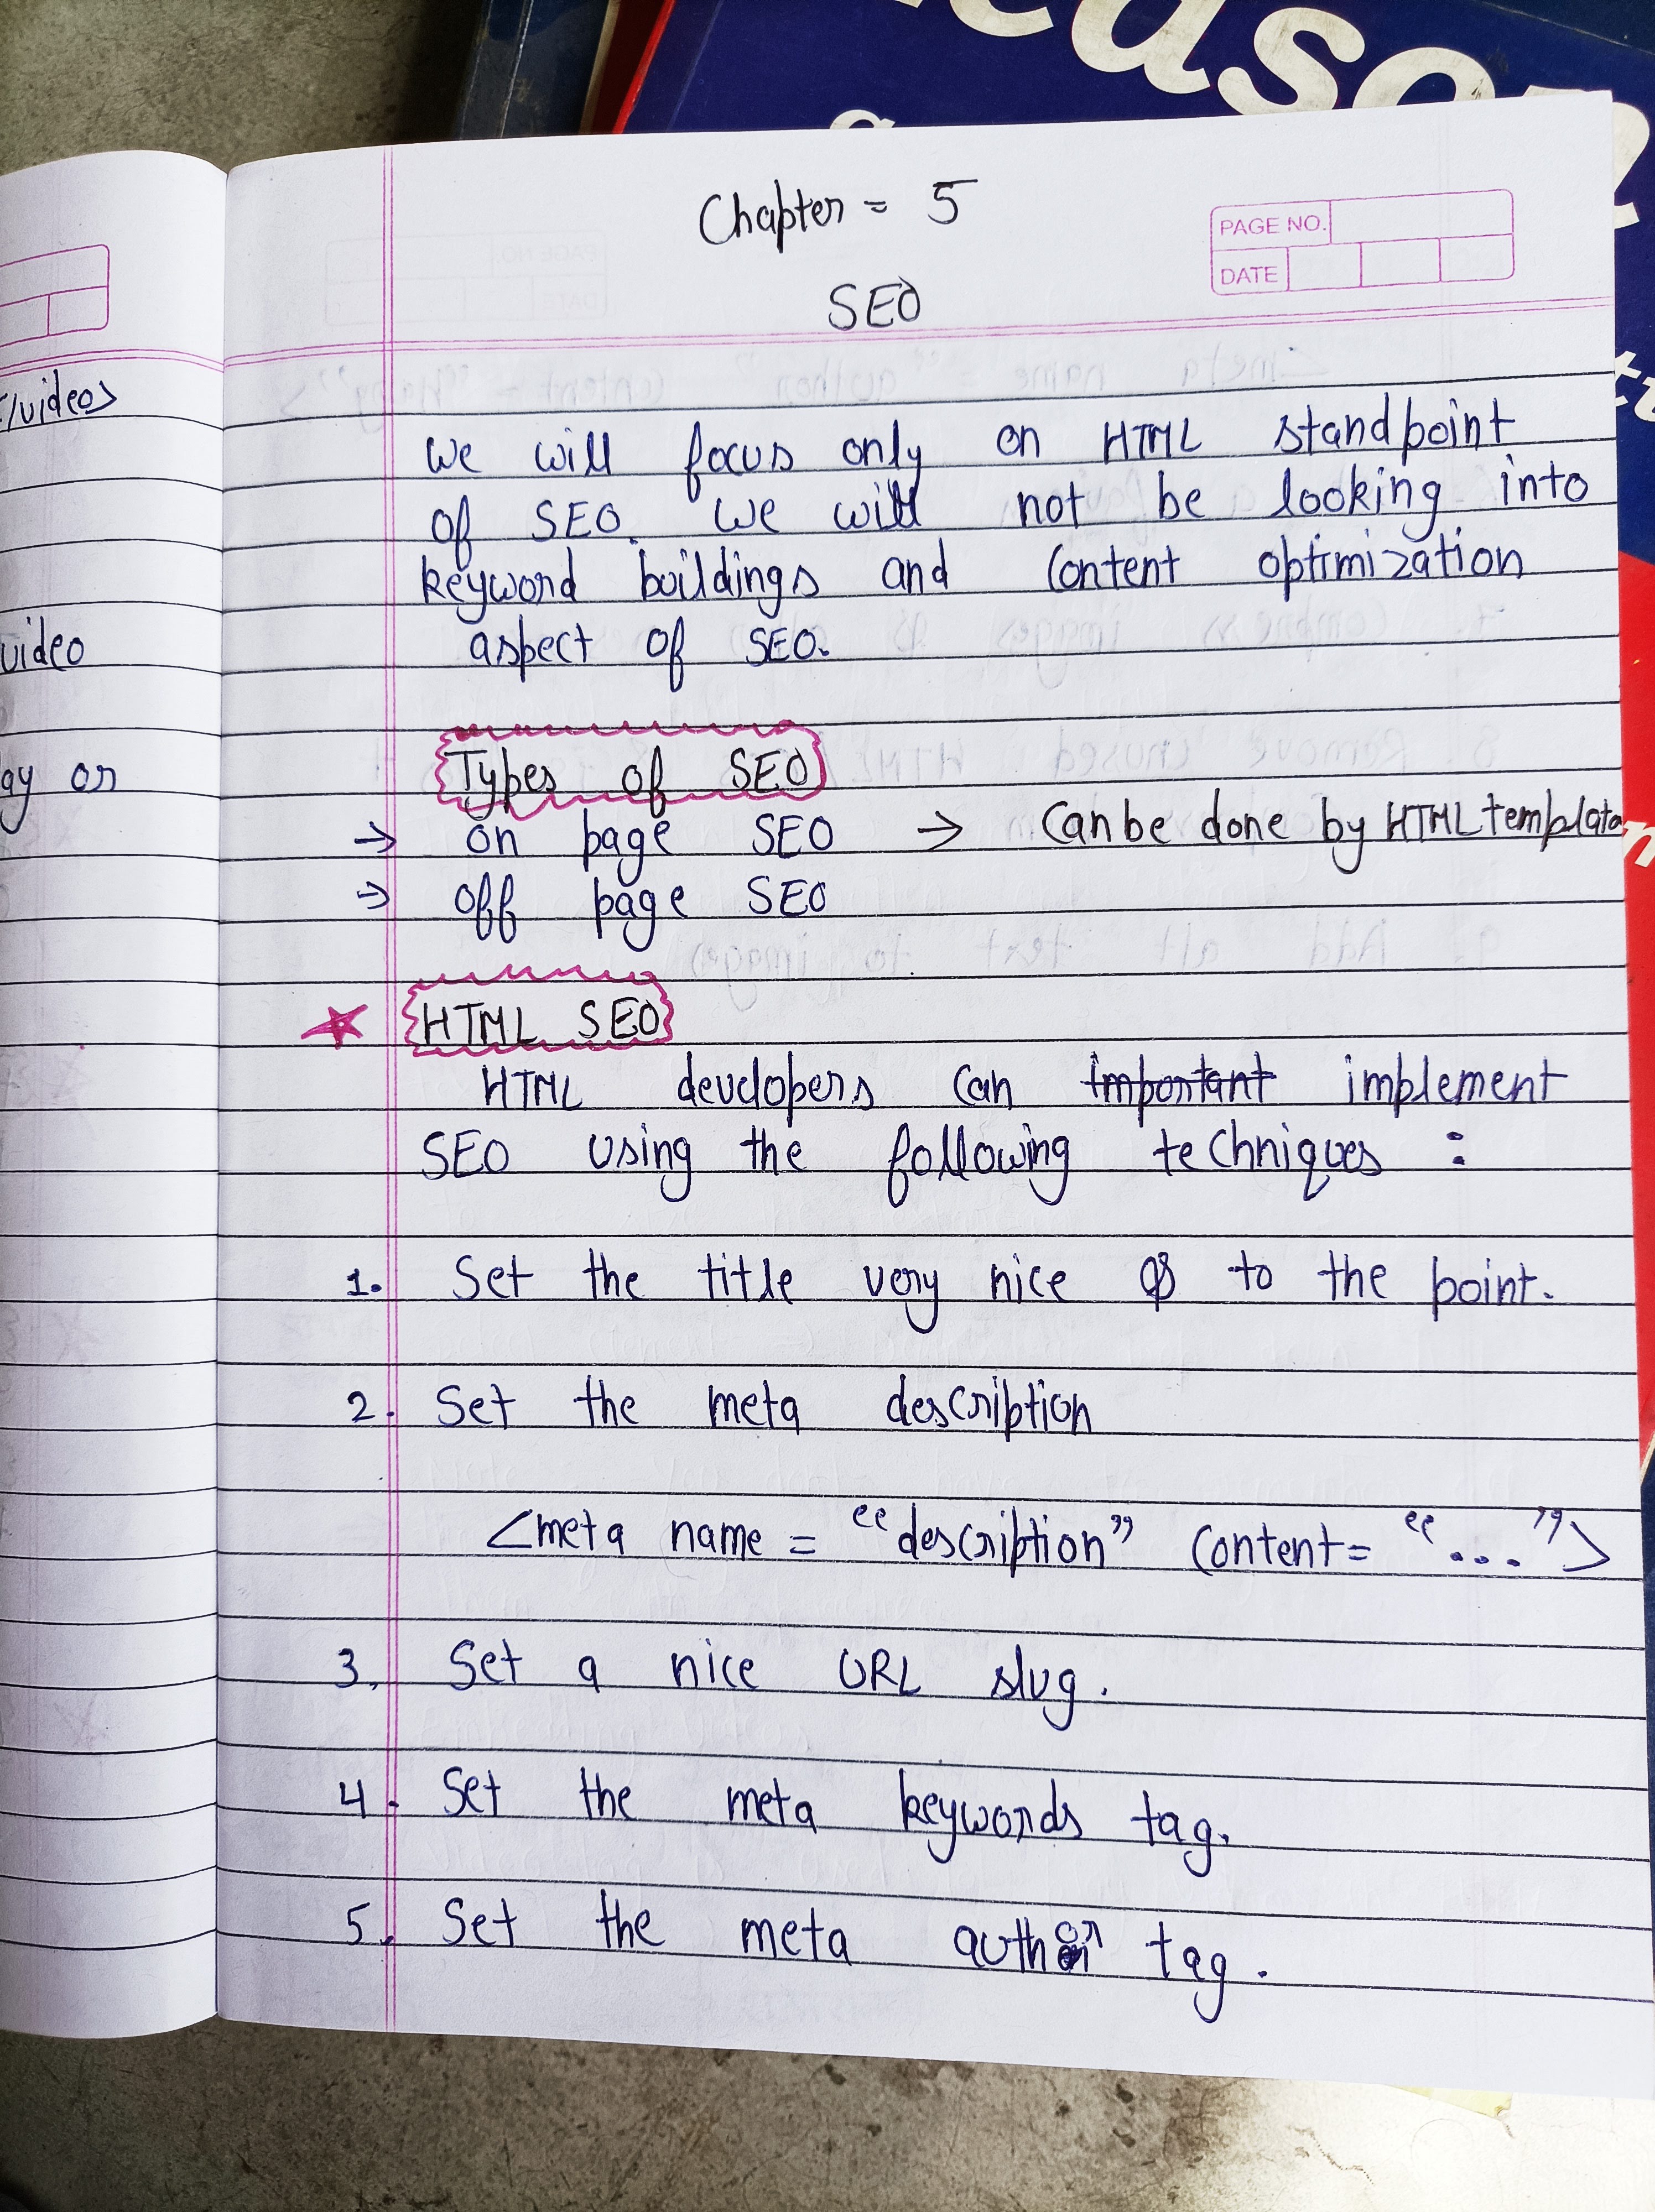 Chapter = 5
SEO
PAGE NO.
DATE
/videos
video
ay or
We will focus only on HTML standpoint
of SEO. We will not be looking into
keyword buildings and Content optimization
aspect of SEO.
Types of SEO
→ on page SEO → Can be done by HTML templata
→ off page SEO
★ HTML SEO
HTML developers can important implement
SEO using the following techniques :
1. Set the title very nice & to the point.
2. Set the meta description
<meta name = "description" Content= "....">
3. Set a nice URL slug.
4. Set the meta keywords tag.
5. Set the meta author tag.